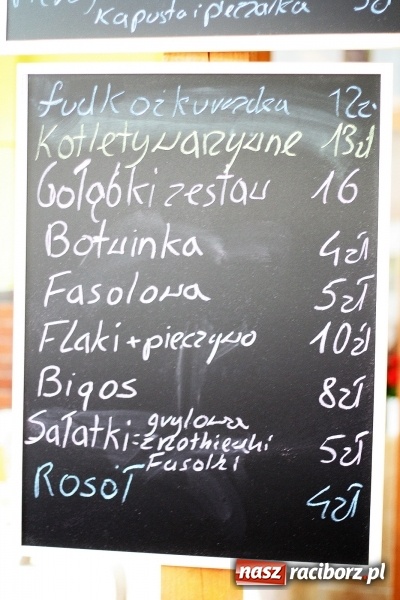 kapusta i pieczarka 50
fudko z kurczaka 12z
Kotlety warzywne 13zł
Gołąbki zestaw 16
Botwinka 4zł
Fasolowa 5zł
Flaki + pieczywo 10zł
Bigos 8zł
Sałatki: grylowa 5zł
Fasolki
Rosół 4zł
nasz raciborz.pl